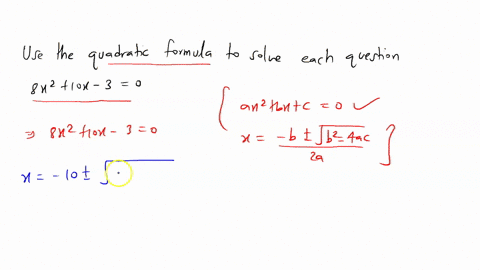 Use the quadratic formula to solve each question
8x² + 10x - 3 = 0
⇒ 8x² + 10x - 3 = 0
x = -10 ± √
ax² + bx + c = 0 ✓
x = (-b ± √(b² - 4ac)) / 2a